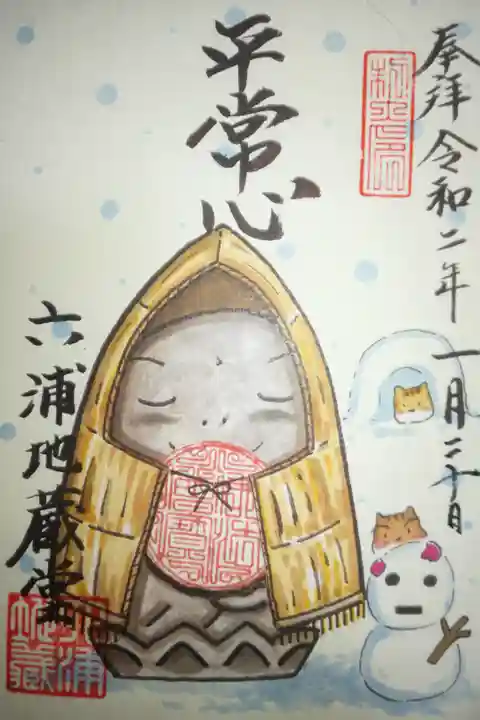 奉拝 令和二年 一月二十日
平常心
六浦地蔵堂